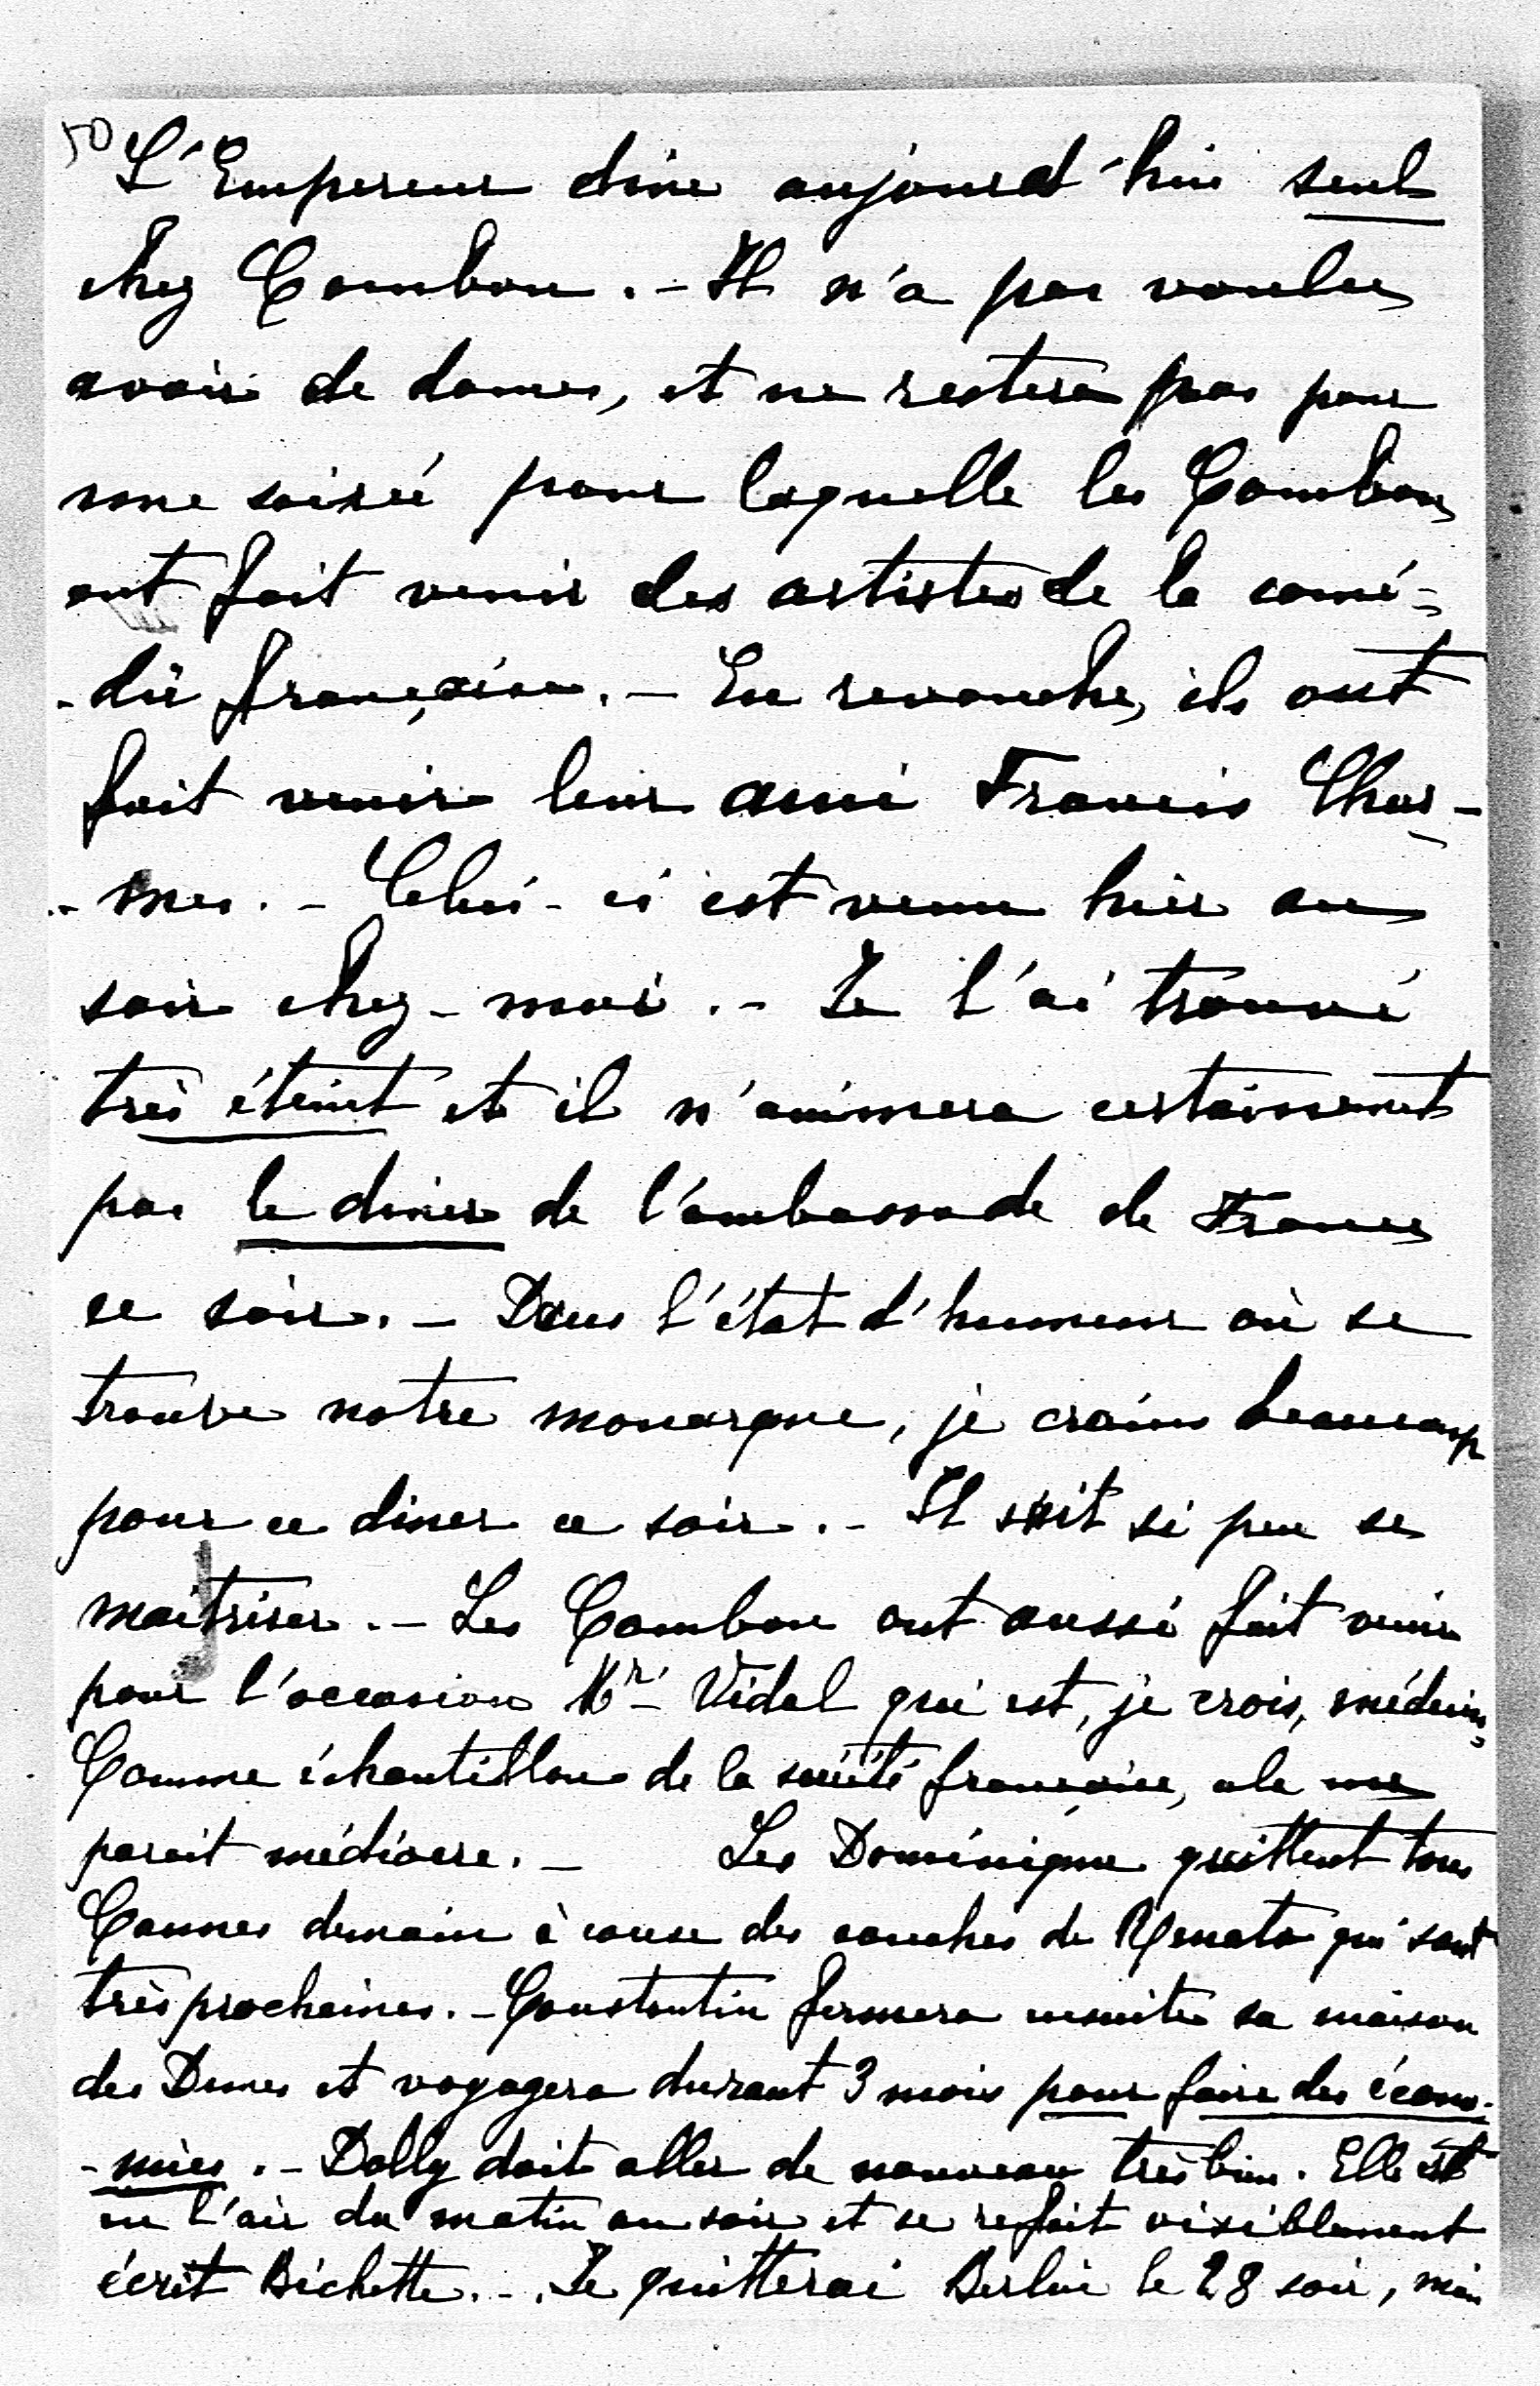 50 L'Empereur dine aujourd'hui seul
chez Cambon. - Il n'a pas voulu
avoir de dames, et ne restera pas pour
une soireé pour laquelle les Cambon
ont fait venir des artistes de la comé-
-die française. - En revanche, ils ont
fait venir leur ami Francis Char-
-mes. - Celui-ci est venu hier au
soir chez-moi. - Je l'ai trouvé
très éteint et il n'animera certainement
pas le diner de l'ambassade de France
ce soir. - Dans l'état d'humeur où se
trouve notre monarque, je crains beaucoup
pour ce diner ce soir. - Il sait si peu se
maitriser. - Les Cambon ont aussi fait venir
pour l'occasion Mr Vidal qui est, je crois, médecin,
Comme échantillon de la société française, cela me
parait médiocre. - Les Dominique quittent tous
Cannes demain à cause des couches de Renata qui sont
très prochaines. - Constantin fermera ensuite sa maison
des Dunes et voyagera durant 3 mois pour faire des écono-
-mies. - Dolly doit aller de nouveau très bien. Elle est
en l'air du matin au soir et se refait visiblement
écrit Bichette. - Je quitterai Berlin le 28 soir, mais